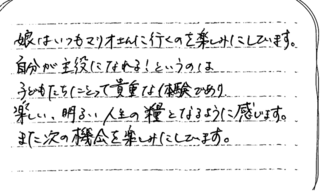 娘はいつもマリオさんに行くのを楽しみにしています。
自分が主役になれる！というのは
子どもたちにとって貴重な体験であり
楽しい、明るい人生の糧となるように感じます。
また次の機会を楽しみにしています。